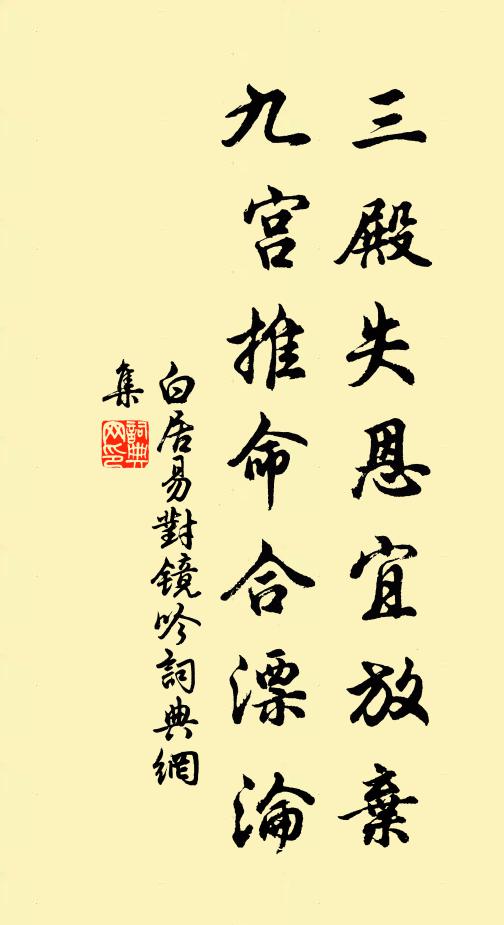 三殿失恩宜放棄
九宮推命合漂淪
白居易對镜吟詞典網
集
詞典
网印